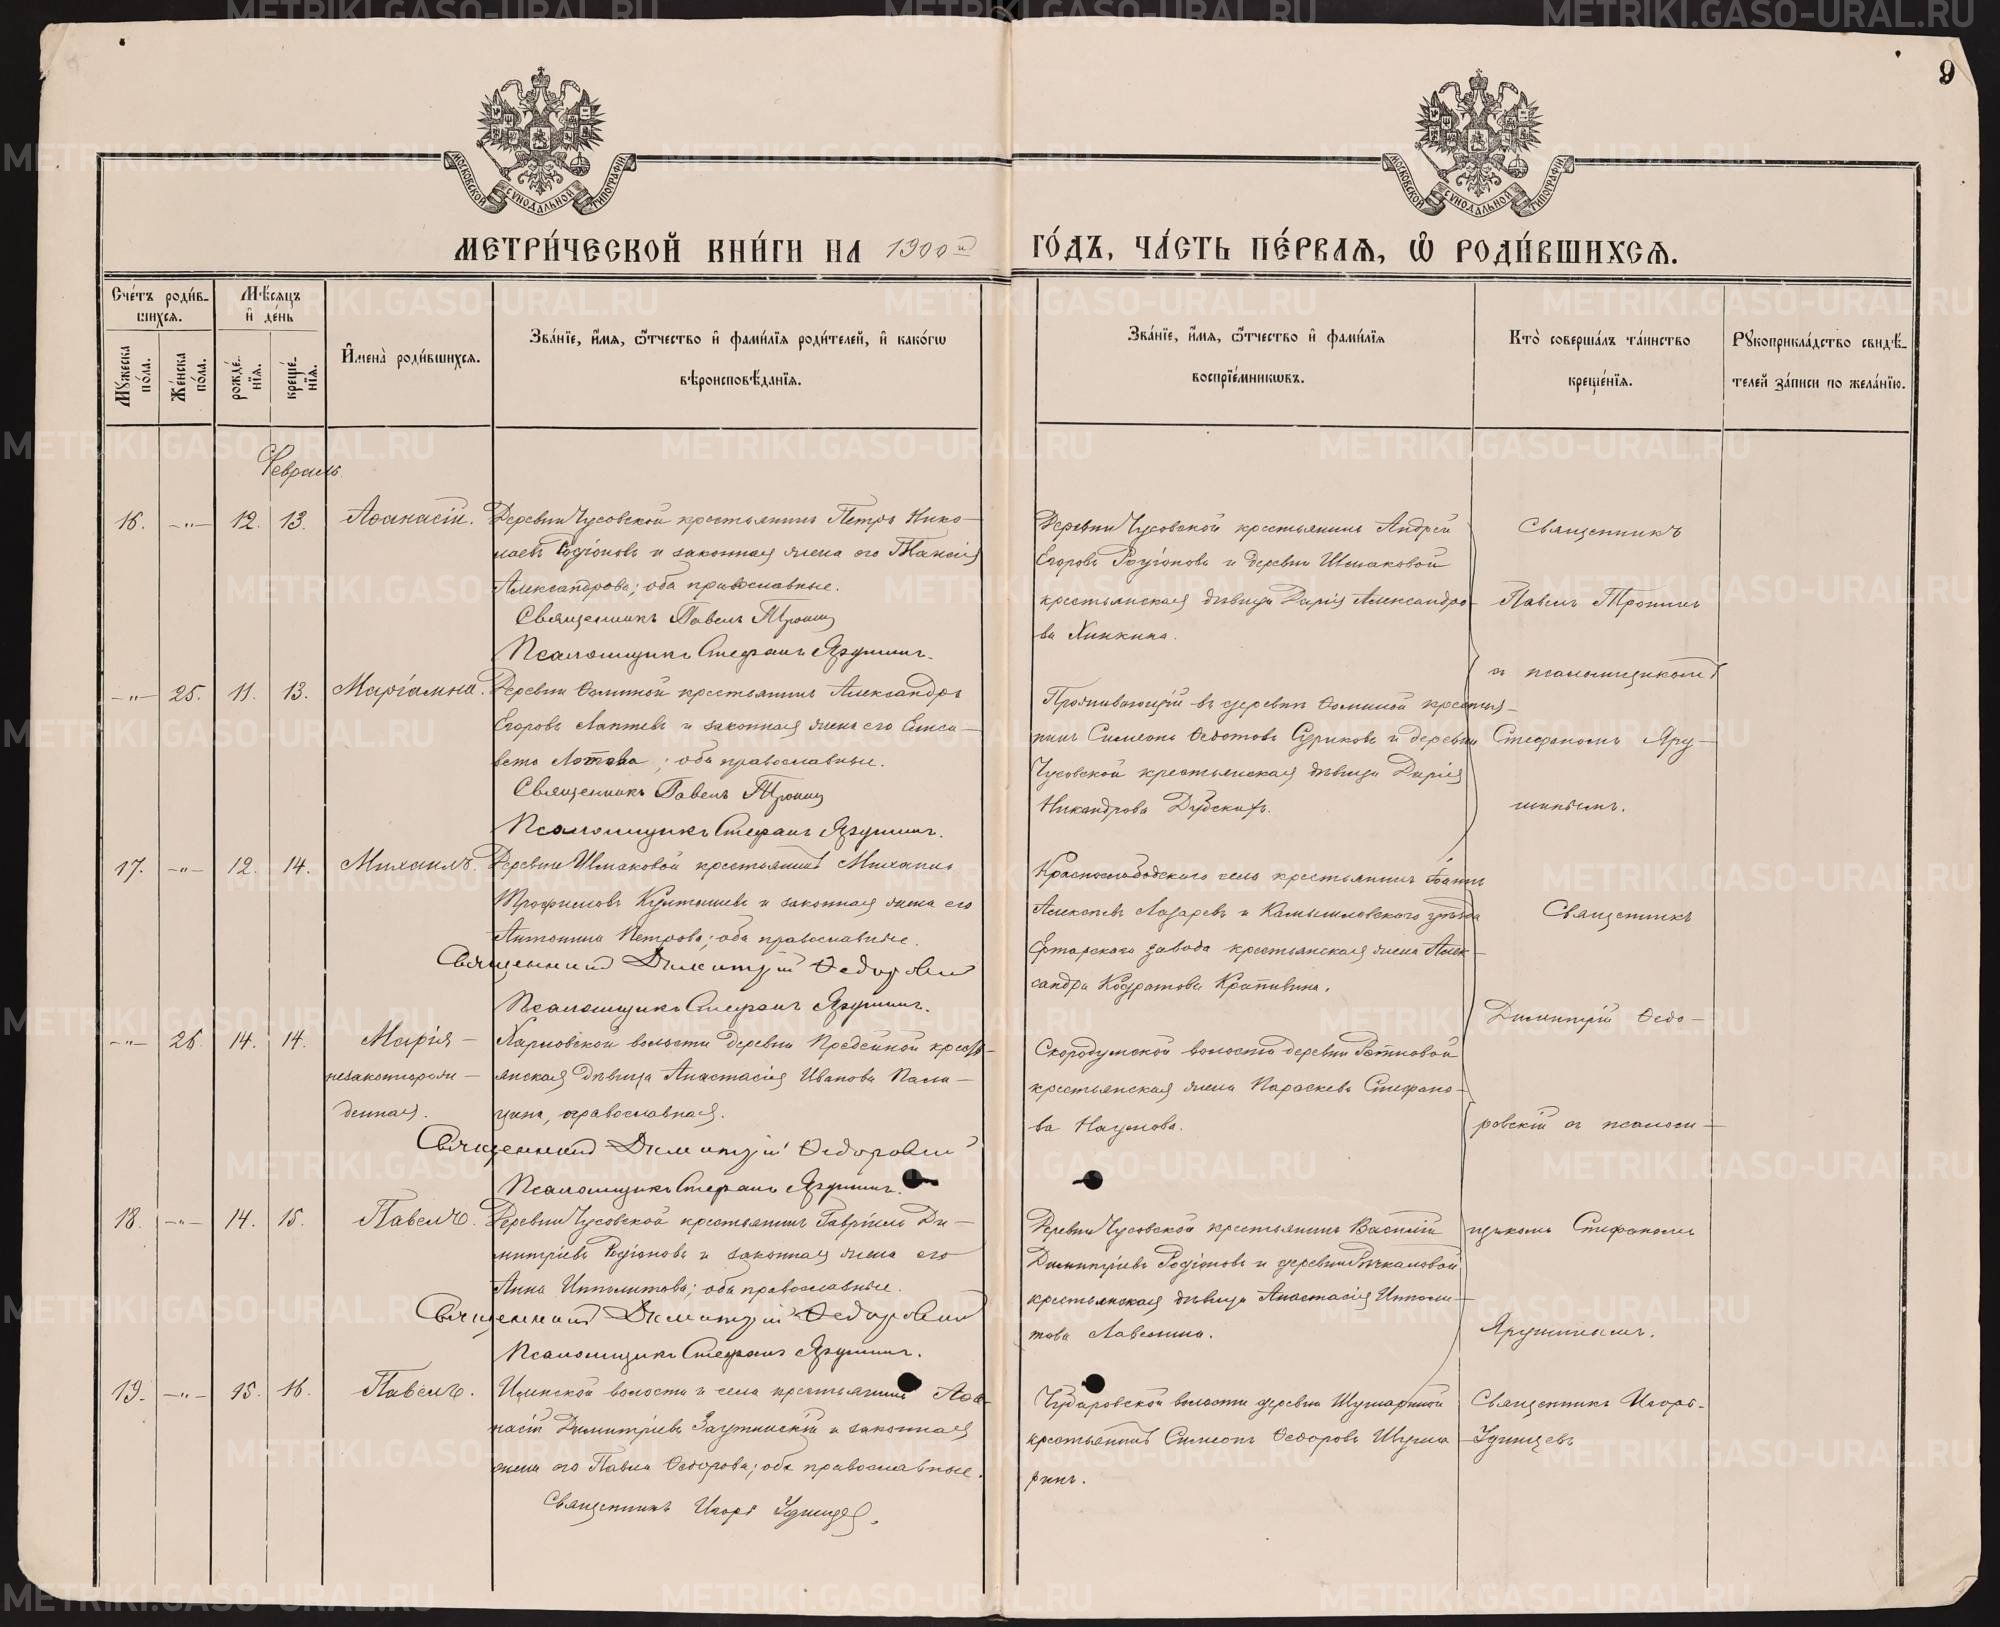 9
МОСКОВСКОЙ СѴНОДАЛЬНОЙ ТИПОГРАФІИ
МОСКОВСКОЙ СѴНОДАЛЬНОЙ ТИПОГРАФІИ
МЕТРИ́ЧЕСКОЙ КНИ́ГИ НА 1900й ГО́ДЪ, ЧА́СТЬ ПЕ́РВАЯ, Ѡ РОДИ́ВШИХСЯ.
Сче́тъ роди́в-
шихся.
Мѣ́сяцъ
и де́нь
Мꙋ́жеска по́ла.
Же́нска по́ла.
рожде́нїя.
креще́нїя.
Имена̀ роди́вшихся.
Зва́нїе, и́мя, ѻ҆́тчество и фами́лїя роди́телей, и како́гѡ
вѣроисповѣ́данїя.
Зва́нїе, и́мя, ѻ҆́тчество и фами́лїя
воспрїе́мникѡвъ.
Кто̀ соверша́лъ та́инство
креще́нїя.
Рꙋкоприкла́дство свидѣ́-
телей за́писи по жела́нїю.
Февраль.
16. -"- 12. 13. Аѳанасій.
Деревни Чусовской крестьянинъ Петръ Нико-
лаевъ Родіоновъ и законная жена его Таисія
Александрова; оба православные.
Священникъ Павелъ Тронин
Псаломщикъ Стефанъ Ярушинъ.
Деревни Чусовской крестьянинъ Андрей
Егоровъ Родіоновъ и деревни Шмаковой
крестьянская дѣвица Дарія Александро-
ва Хинкина.
Священникъ
Павелъ Тронинъ
съ псаломщикомъ
Стефаномъ Яру-
шинымъ.
-"- 25. 11. 13. Маріамна.
Деревни Ѳоминой крестьянинъ Александръ
Егоровъ Лаптевъ и законная жена его Елиса-
вета; оба православные.
Священникъ Павелъ Тронин
Псаломщикъ Стефанъ Ярушинъ.
Проживающій въ деревнѣ Ѳоминой крестья-
нинъ Симеонъ Ѳедотовъ Суриковъ и деревни
Чусовской крестьянская дѣвица Дарія
Никандрова
17. -"- 12. 14. Михаилъ.
Деревни Шмаковой крестьянинъ Михаилъ
Трофимовъ Култышевъ и законная жена его
Антонина Петрова; оба православные.
Священникъ Димитрій Ѳедоровскій
Псаломщикъ Стефанъ Ярушинъ.
Краснослободского села крестьянинъ Іоаннъ
Алексѣевъ Лазаревъ и Камышловского уѣзда
Ертарскаго завода крестьянская жена Алек-
сандра Кодратова Крапивина.
Священникъ
Димитрій Ѳедо-
ровскій съ псалом-
щикомъ Стефаномъ
Ярушинымъ.
-"- 26. 14. 14. Марія-
незаконнорож-
денная.
Харловской волости деревни крестья-
янская дѣвица Анастасія Иванова
православная.
Священникъ Димитрій Ѳедоровскій
Псаломщикъ Стефанъ Ярушинъ.
Скородумской волости деревни
крестьянская жена Параскева Стефано-
ва Наумова.
18. -"- 14. 15. Павелъ.
Деревни Чусовской крестьянинъ Гавріилъ Ди-
митріевъ Родіоновъ и законная жена его
Анна Ипполитова; оба православные.
Священникъ Димитрій Ѳедоровскій
Псаломщикъ Стефанъ Ярушинъ.
Деревни Чусовской крестьянинъ Василій
Димитріевъ Родіоновъ и деревни Бѣкановой
крестьянская дѣвица Анастасія Ипполи-
това
19. -"- 15. 16. Павелъ.
волости и села крестьянинъ Аѳа-
насій Димитріевъ Заутинскій и законная
жена его Павла Ѳедорова; оба православные.
Священникъ Игорь Удинцев.
Чубаровской волости деревни Шушариной
крестьянинъ Симеонъ Ѳедоровъ Шуша-
ринъ.
Священникъ Игорь-
Удинцевъ
METRIKI.GASO-URAL.RU